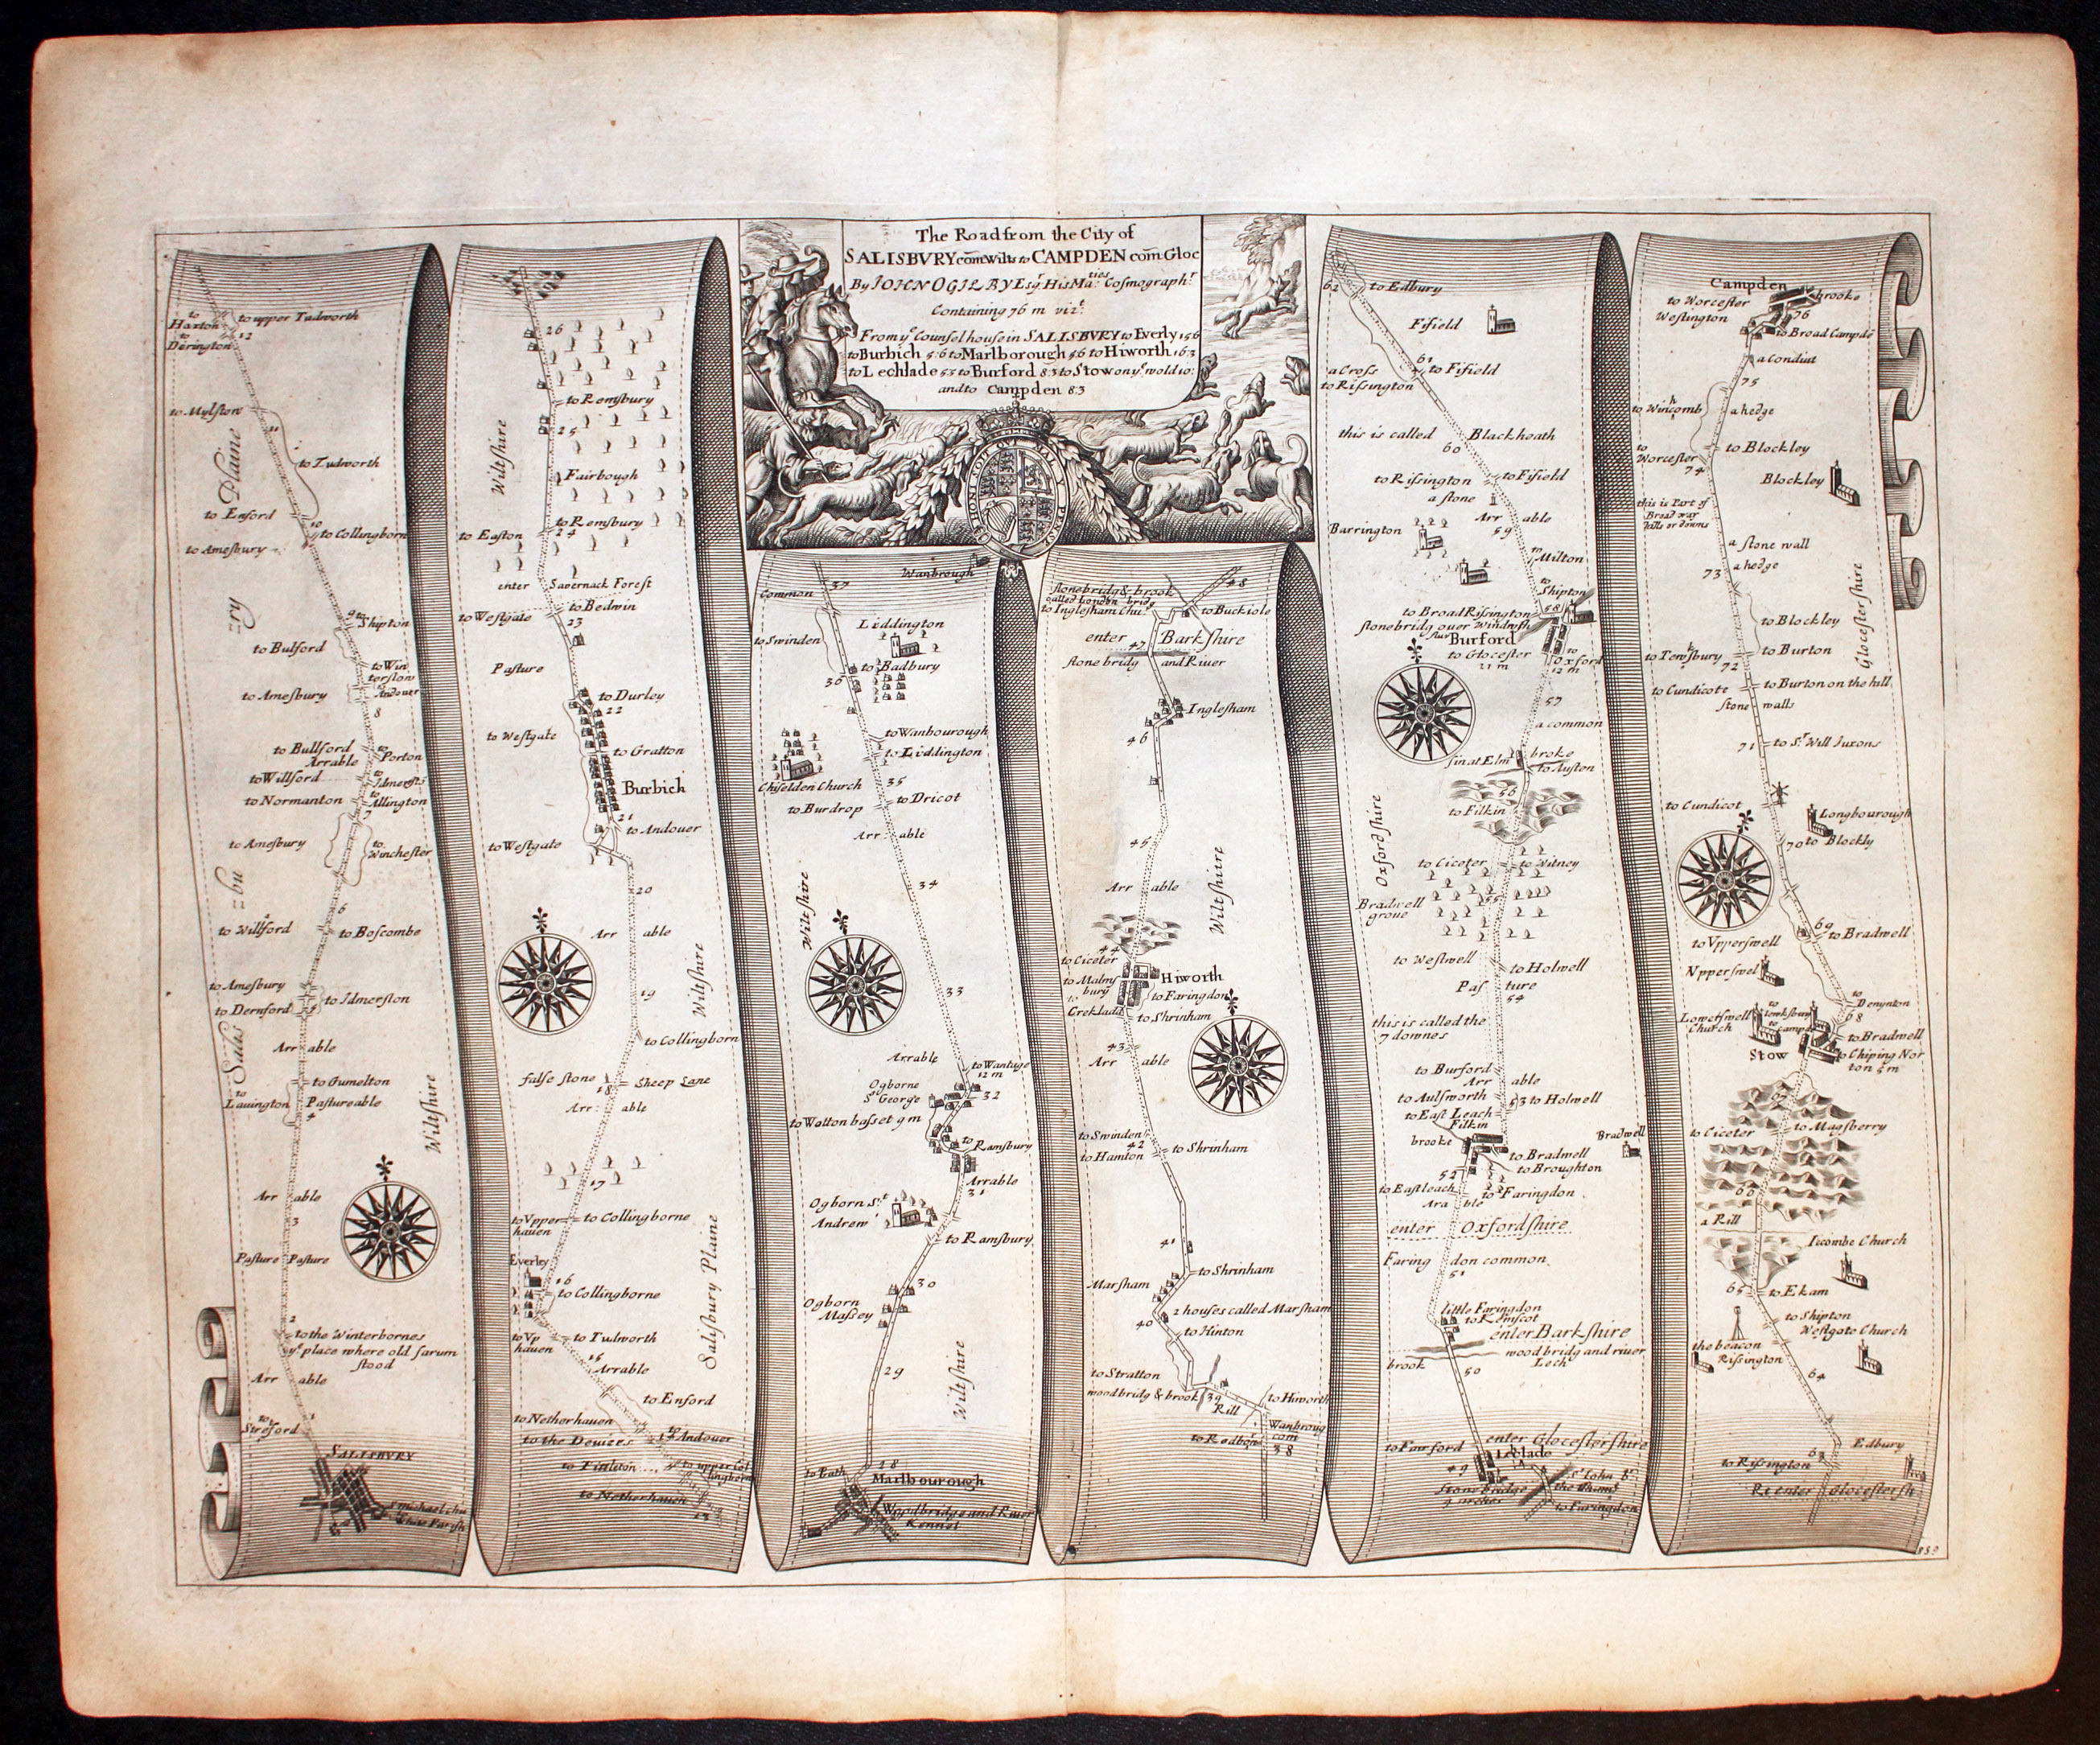 The Road from the City of
SALISBVRY com Wilts to CAMPDEN com Gloc
By IOHN OGILBY Esqr. His Maties Cosmographr.
Containing 76 m vizt.
From ye Counsel house in SALISBVRY to Everly 15 6
to Burbich 5:6 to Marlborough 5 6 to Hiworth 16:3
to Lechlade 5 5 to Burford 8 3 to Stow on ye. wold 10:
and to Campden 8 3
to Haxton
to upper Tudworth
to Derington
12
to Mylston
11
to Tudworth
Plaine
to Enford
10
to Collingborn
to Amesbury
9
to Shipton
ry
to Bulford
to Win
terslow
to Amesbury
to Andover
8
to Bullford
to Porton
Arrable
to Willford
to Idmerst
to Normanton
to Allington
7
to Amesbury
to Winchester
bu
6
to Willford
to Boscombe
to Amesbury
to Dernford
5
to Idmerston
Salis
Arr able
to Gumelton
to Lavington
Pastureable
4
Wiltshire
Arr able
3
Pasture Pasture
2
to the Winterbornes
ye place where old sarum
stood
Arr able
1
to Streford
SALISBVRY
26
to Remsbury
Wiltshire
25
Fairbough
to Easton
to Remsbury
24
enter Savernack Forest
to Westgate
to Bedwin
23
Pasture
to Durley
22
to Westgate
to Gratton
Burbich
21
to Andover
to Westgate
20
Arr able
Wiltshire
19
to Collingborn
false stone
18
Sheep Lane
Arr: able
17
to Vpper
haven
to Collingborne
Everley
16
to Collingborne
Salisbury Plane
to Vp
haven
to Tudworth
15
Arrable
to Enford
to Netherhaven
to the Devices
14
to Andover
to Fittleton
to upper Col
lingborn
to Netherhaven
13
37
Wanbrough
Common
Liddington
to Swinden
to Badbury
36
to Wanbourough
to Liddington
Chiselden Church
35
to Burdrop
to Dricot
Arr able
34
Wiltshire
33
Arrable
to Wantage
12 m
Ogborne
St George
32
to Wotton basset 9 m
to Ramsbury
Arrable
31
Ogborn St.
Andrew
to Ramsbury
30
Ogborn
Massey
29
Wiltshire
28
to Bath
Marlbourough
Woodbridge and River
Kennet
48
stonebridg & brook
called London bridg
to Inglesham Chu.
to Buckiole
enter Barkshire
47
stone bridg and River
Inglesham
46
45
Arr able
Wiltshire
44
to Ciceter
to Malms
bury
Hiworth
to Faringdon
to Creklad
to Shrinham
43
Arr able
to Swinden
42
to Hamton
to Shrinham
41
to Shrinham
Marsham
2 houses called Marsham
40
to Hinton
to Stratton
woodbridg & brook
39
to Hiworth
Rill
to Redbon
Wanbroug
com
38
62
to Edbury
Fifield
61
a Cross
to Fifield
to Rissington
this is called Blackheath
60
to Rissington
to Fifield
a stone
Arr able
59
Barrington
Milton
to Shipton
to Broad Rissington
58
stonebridg over Windrush
flu
Burford
to Glocester
21 m
to Oxford
12 m
57
a common
sin at Elm
broke
to Auston
56
to Filkin
Oxfordshire
to Ciceter
to Witney
Bradwell
grove
55
to Westwell
to Holwell
Pas ture
54
this is called the
7 downes
to Burford
Arr able
to Aulsworth
53
to Holwell
to East Leach
Filkin
brooke
Bradwell
to Bradwell
to Broughton
52
to Eastleach
to Faringdon
Ara ble
enter Oxfordshire
Faring don common
51
little Faringdon
to Kemscot
enter Barkshire
wood bridg and river
Lech
brook
50
enter Glocestershire
to Fairford
Lechlade
49
Stone bridge
St. John B
to Faringdon
Campden
brooke
to Worcester
Weslington
76
to Broad Campde
a Conduit
75
to Winchcomb
a hedge
to Worcester
to Blockley
74
Blockley
this is Part of
Broad way
hills or downs
a stone wall
a hedge
73
Glocestershire
to Blockley
to Tewksbury
to Burton
72
to Cundicote
to Burton on the hill
stone walls
71
to Sr. Will Juxons
to Cundicot
Longbourough
70
to Blockly
69
to Bradwell
to Vpperswell
Vpperswel
to Denynton
68
Lowerswell
Church
to Tewksbury
to campd
to Bradwell
Stow
to Chiping Nor
ton 5 m
67
to Ciceter
to Magsberry
66
a Rill
Iccombe Church
65
to Ekam
to Shipton
Westgate Church
the beacon
Rissington
64
63
Edbury
to Rissington
Re enter Glocestersh